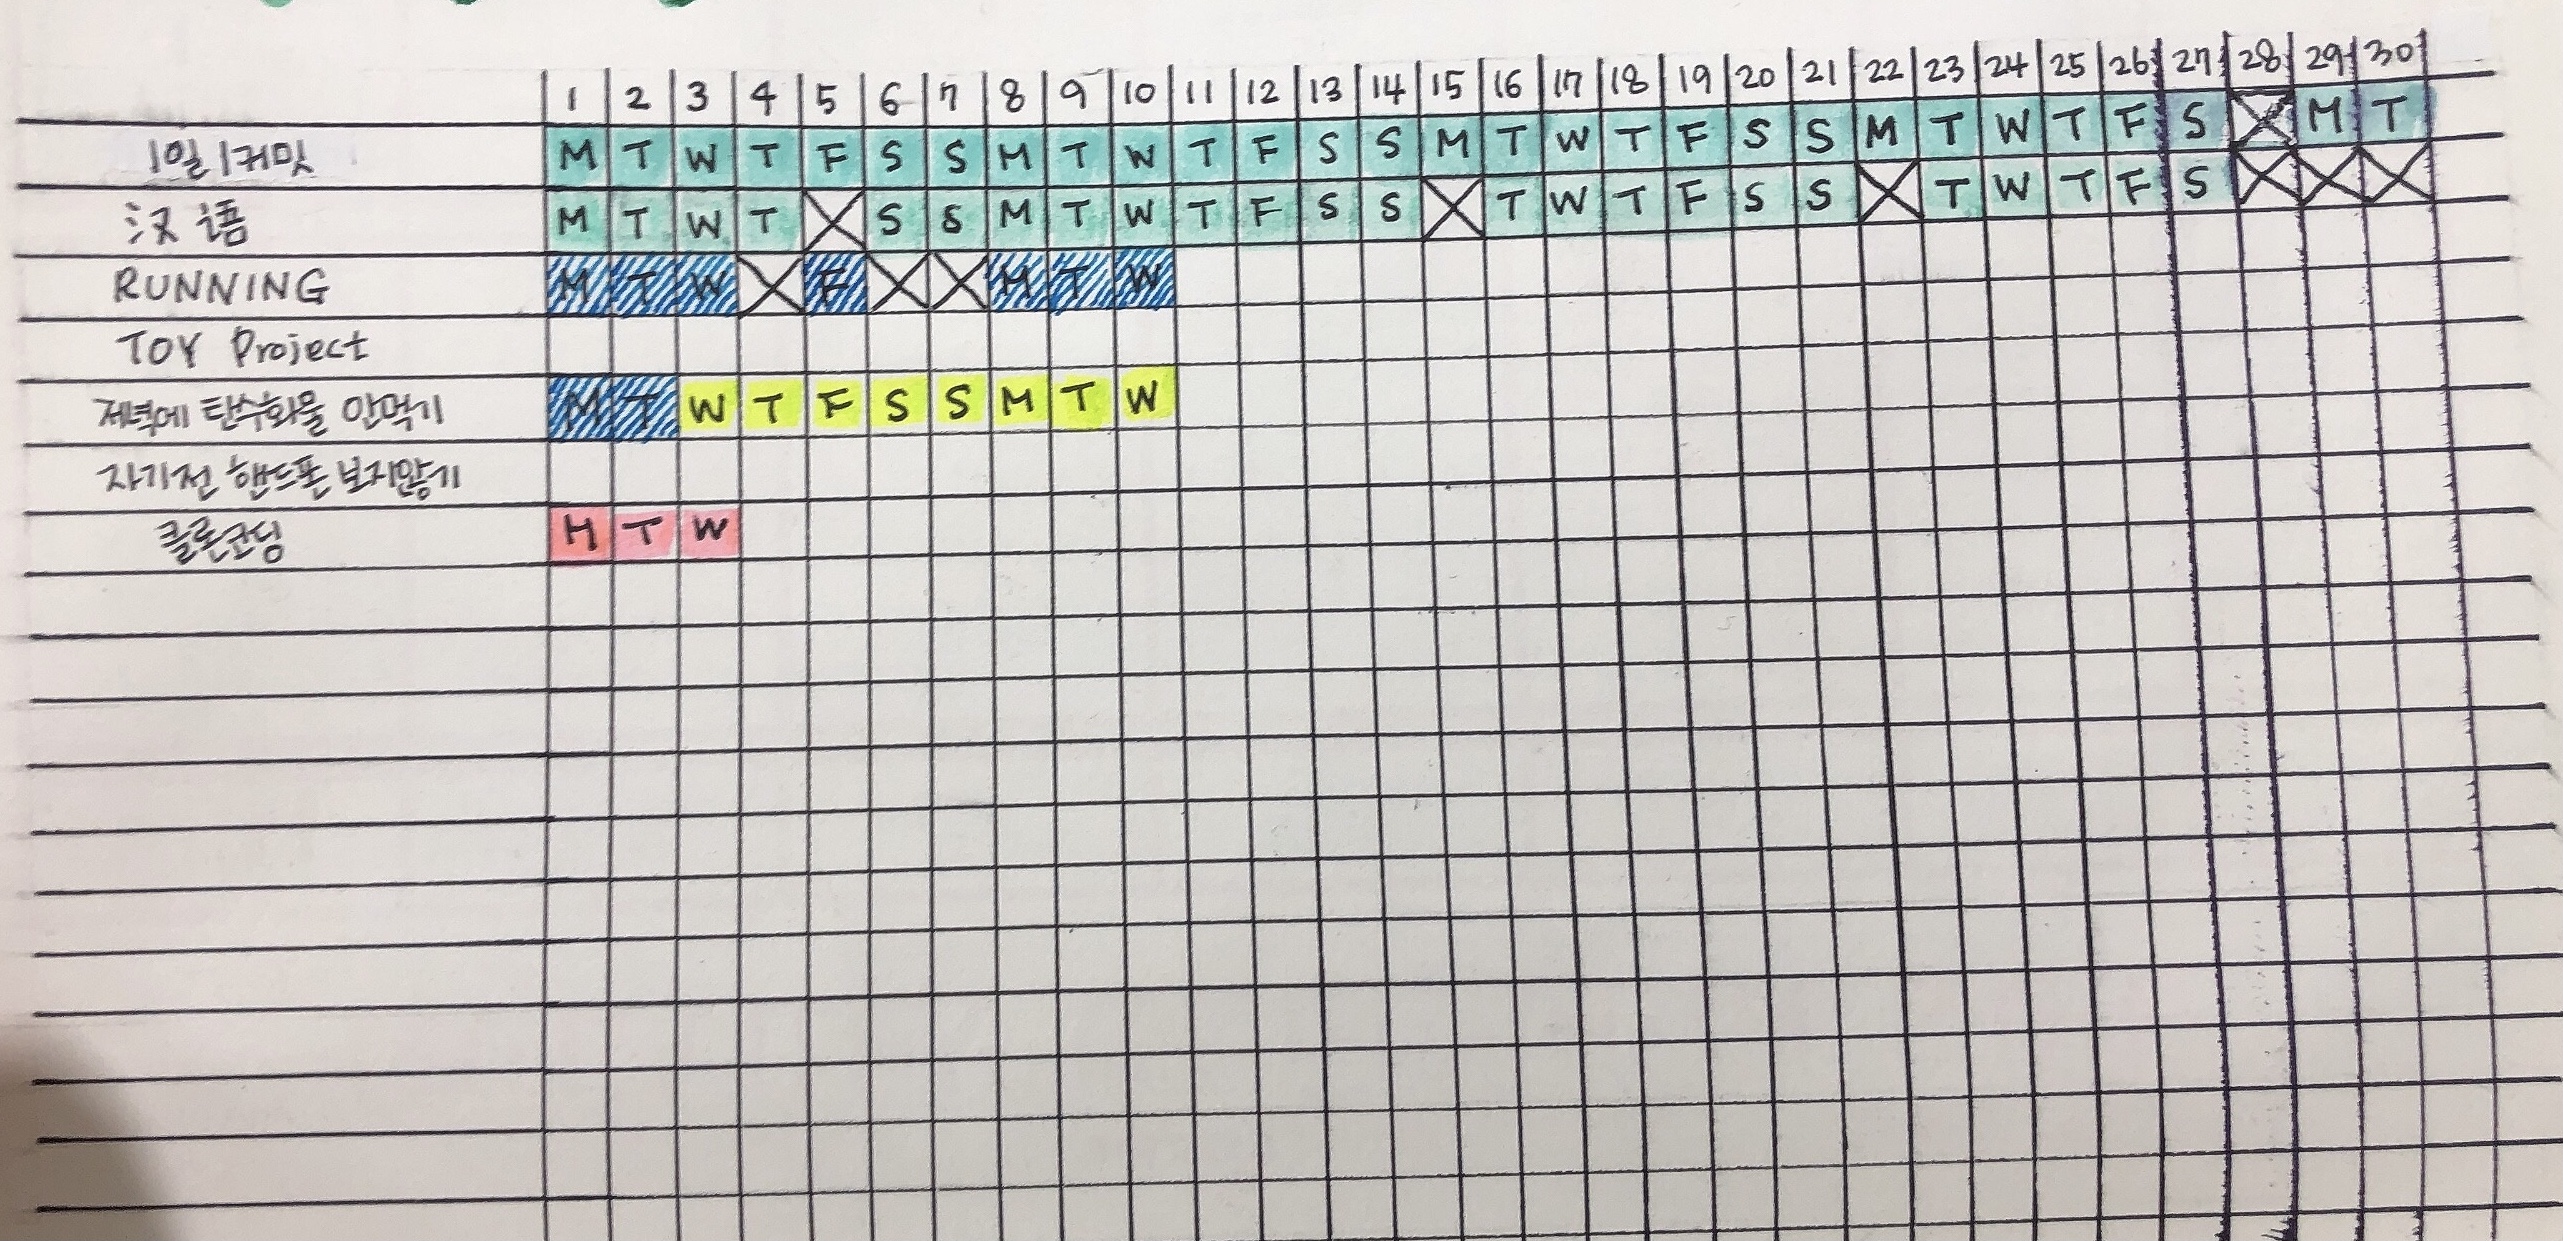 1 2 3 4 5 6 7 8 9 10 11 12 13 14 15 16 17 18 19 20 21 22 23 24 25 26 27 28 29 30
1일 1커밋 M T W T F S S M T W T F S S M T W T F S S M T W T F S M T
汉语 M T W T S S M T W T F S S T W T F S S T W T F S
RUNNING M T W F M T W
TOY Project
저녁에 탄수화물 안먹기 M T W T F S S M T W
자기전 핸드폰 보지않기
클론코딩 M T W